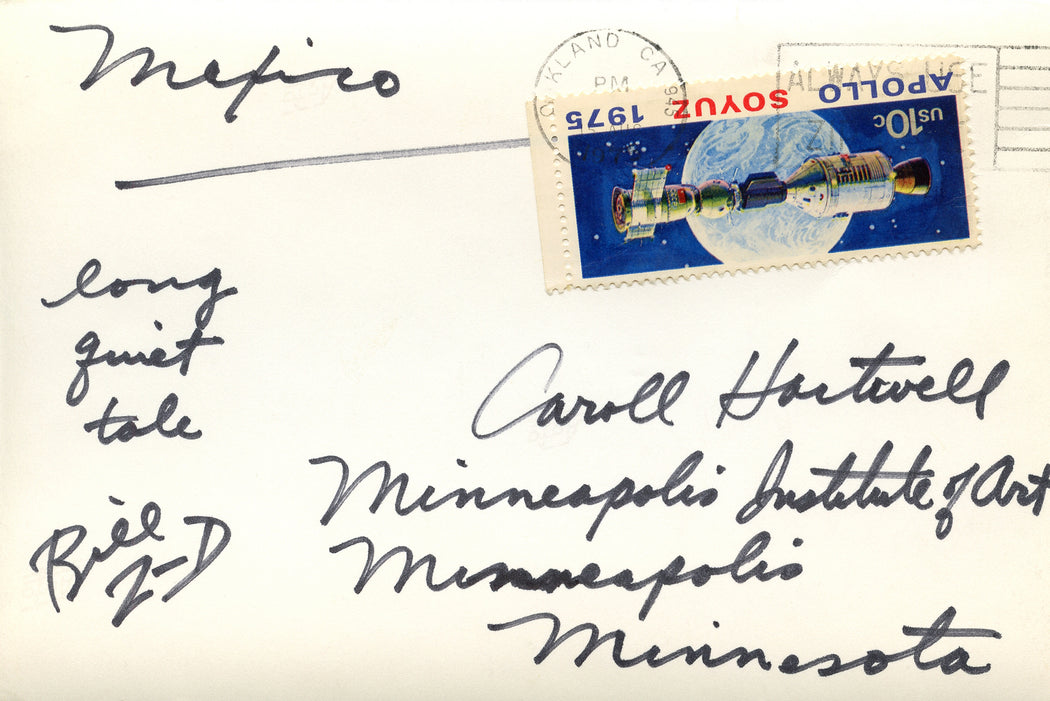 Mexico
long
quiet
tale
Bill
J-D
OAKLAND CA
PM
1975
945
ALWAYS USE
ZIP
APOLLO
SOYUZ
1975
US 10c
Caroll Hartwell
Minneapolis Institute of Art
Minneapolis
Minnesota